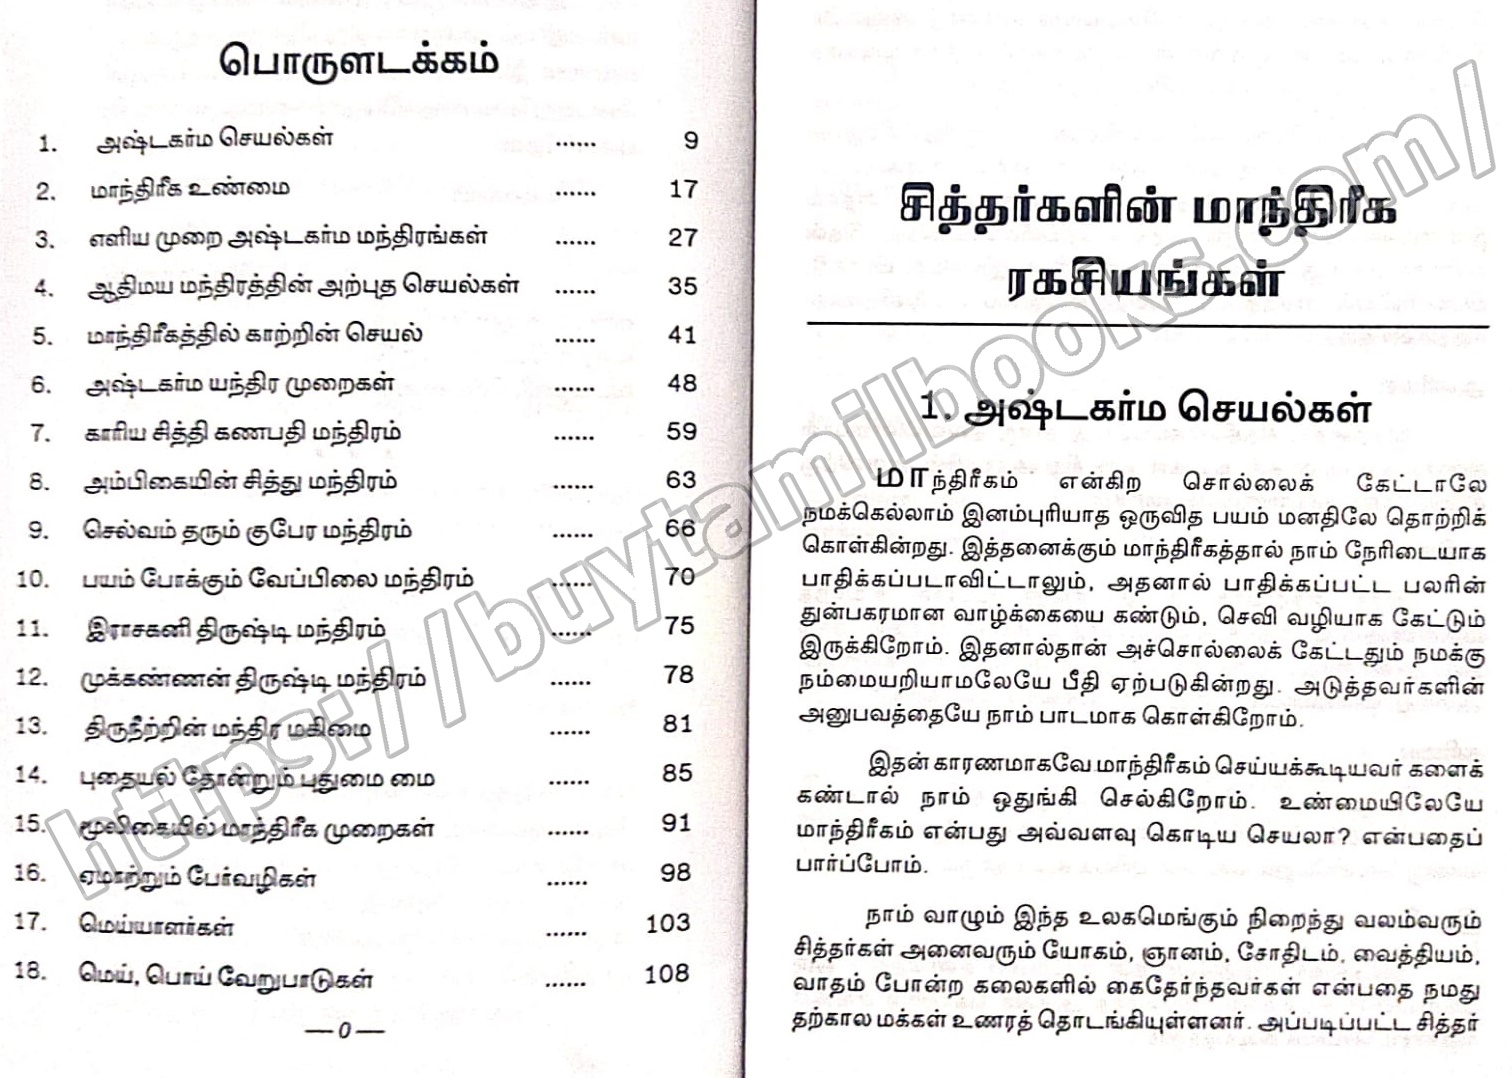 பொருளடக்கம்
1. அஷ்டகர்ம செயல்கள் ...... 9
2. மாந்திரீக உண்மை ...... 17
3. எளிய முறை அஷ்டகர்ம மந்திரங்கள் ...... 27
4. ஆதிமய மந்திரத்தின் அற்புத செயல்கள் ...... 35
5. மாந்திரீகத்தில் காற்றின் செயல் ...... 41
6. அஷ்டகர்ம யந்திர முறைகள் ...... 48
7. காரிய சித்தி கணபதி மந்திரம் ...... 59
8. அம்பிகையின் சித்து மந்திரம் ...... 63
9. செல்வம் தரும் குபேர மந்திரம் ...... 66
10. பயம் போக்கும் வேப்பிலை மந்திரம் ...... 70
11. இராசகனி திருஷ்டி மந்திரம் ...... 75
12. முக்கண்ணன் திருஷ்டி மந்திரம் ...... 78
13. திருநீற்றின் மந்திர மகிமை ...... 81
14. புதையல் தோன்றும் புதுமை மை ...... 85
15. மூலிகையில் மாந்திரீக முறைகள் ...... 91
16. ஏமாற்றும் பேர்வழிகள் ...... 98
17. மெய்யாளர்கள் ...... 103
18. மெய், பொய் வேறுபாடுகள் ...... 108
—0—
சித்தர்களின் மாந்திரீக
ரகசியங்கள்
1. அஷ்டகர்ம செயல்கள்
மாந்திரீகம் என்கிற சொல்லைக் கேட்டாலே
நமக்கெல்லாம் இனம்புரியாத ஒருவித பயம் மனதிலே தொற்றிக்
கொள்கின்றது. இத்தனைக்கும் மாந்திரீகத்தால் நாம் நேரிடையாக
பாதிக்கப்படாவிட்டாலும், அதனால் பாதிக்கப்பட்ட பலரின்
துன்பகரமான வாழ்க்கையை கண்டும், செவி வழியாக கேட்டும்
இருக்கிறோம். இதனால்தான் அச்சொல்லைக் கேட்டதும் நமக்கு
நம்மையறியாமலேயே பீதி ஏற்படுகின்றது. அடுத்தவர்களின்
அனுபவத்தையே நாம் பாடமாக கொள்கிறோம்.
இதன் காரணமாகவே மாந்திரீகம் செய்யக்கூடியவர் களைக்
கண்டால் நாம் ஒதுங்கி செல்கிறோம். உண்மையிலேயே
மாந்திரீகம் என்பது அவ்வளவு கொடிய செயலா? என்பதைப்
பார்ப்போம்.
நாம் வாழும் இந்த உலகமெங்கும் நிறைந்து வலம்வரும்
சித்தர்கள் அனைவரும் யோகம், ஞானம், சோதிடம், வைத்தியம்,
வாதம் போன்ற கலைகளில் கைதேர்ந்தவர்கள் என்பதை நமது
தற்கால மக்கள் உணரத் தொடங்கியுள்ளனர். அப்படிப்பட்ட சித்தர்
https://buytamilbooks.com/